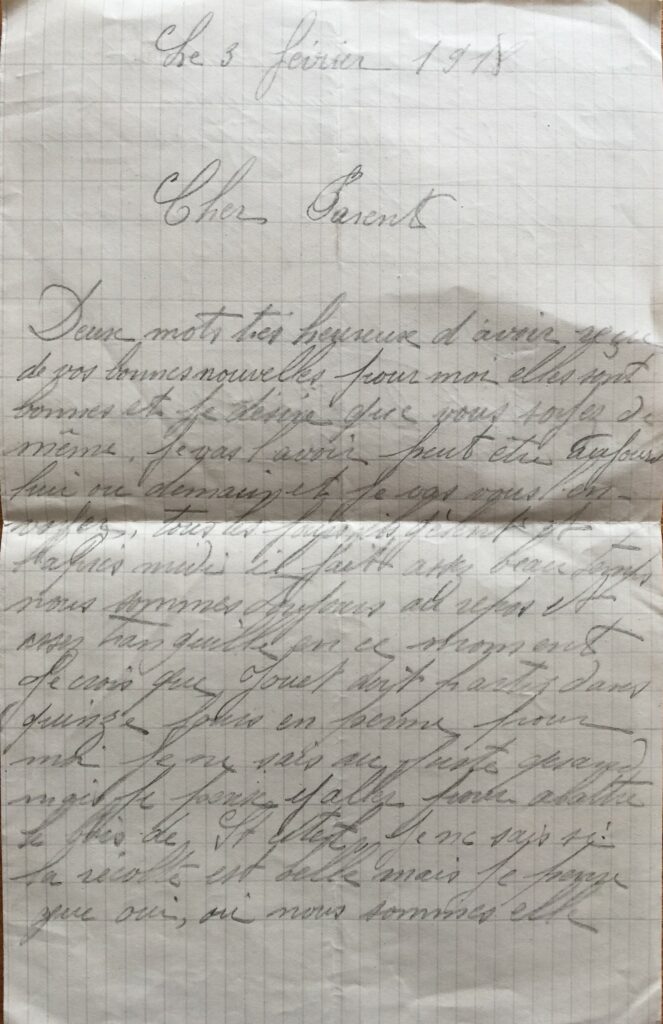 Le 3 février 1918
Cher Parent
Deux mots très heureux d'avoir reçu
de vos bonnes nouvelles pour moi elles sont
bonnes et je désire que vous soyez de
même. je vas l'avoir peut être aujourd
hui ou demain et je vas vous l'en-
voyer, tous les
l'après midi il fait assez beau temps
nous sommes toujours au repos et
assez tranquille en ce moment
Je crois que Jouet doit partir dans
quinze jours en perme pour
moi je ne sais au juste quand
mais je pense y aller pour abattre
le bois de St je ne sais si
la récolte est belle mais je pense
que oui, où nous sommes elle